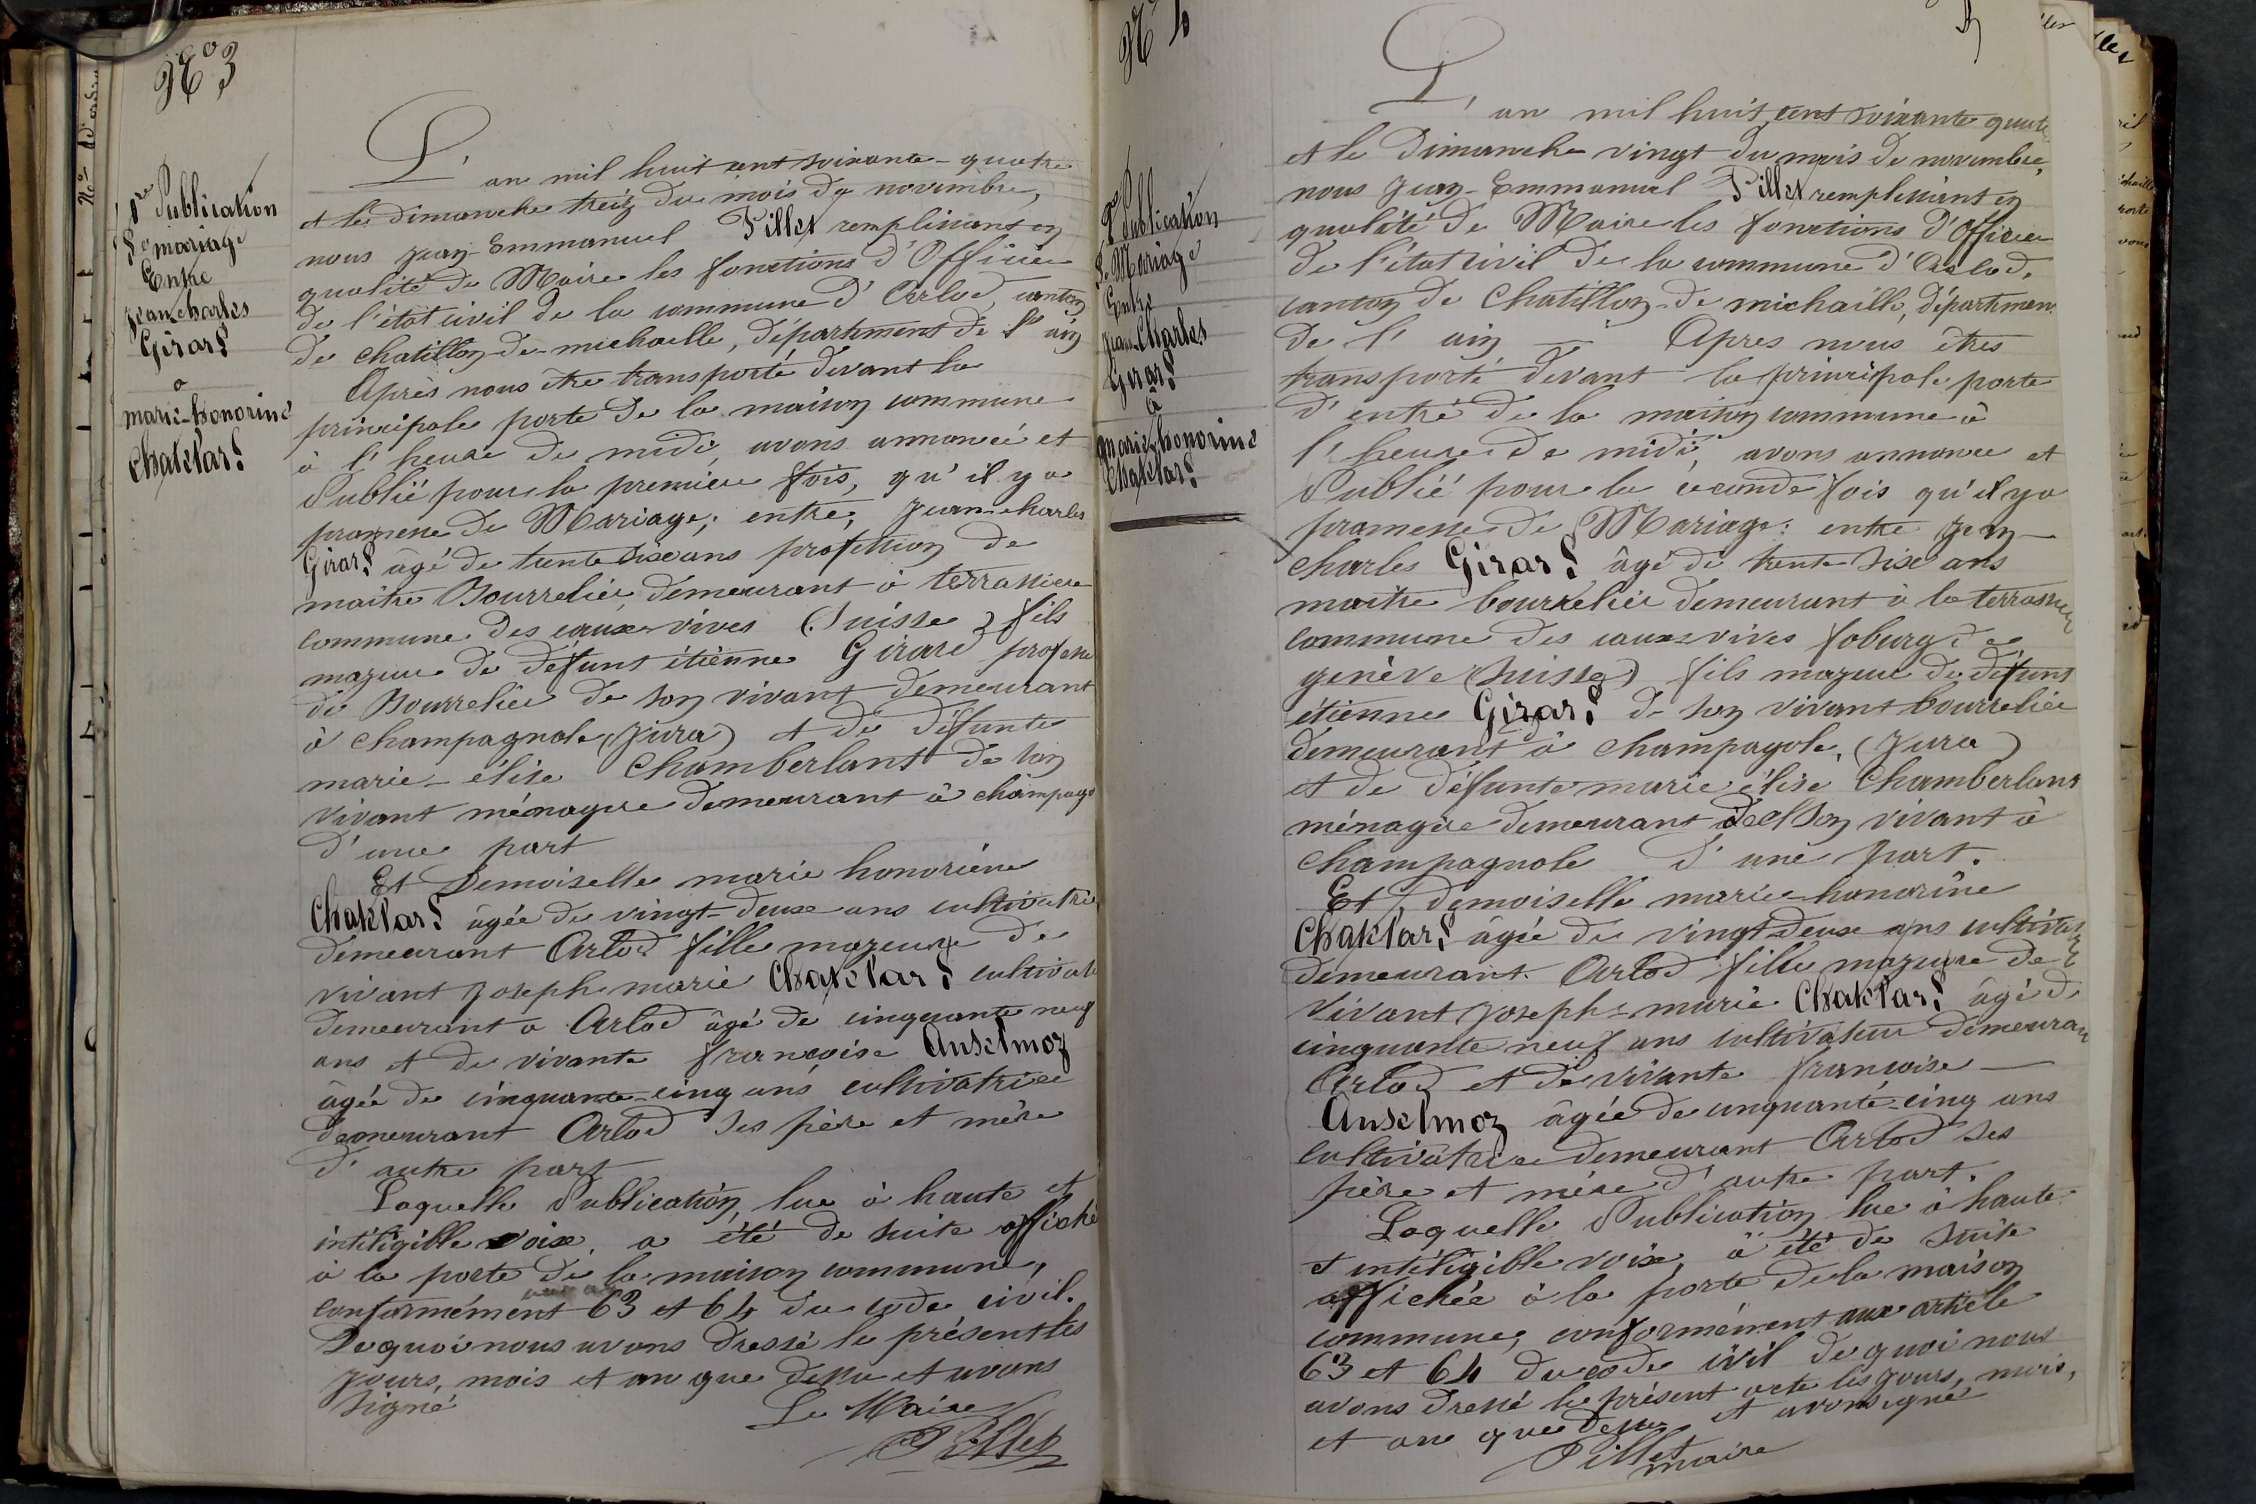 N° 3
1re Publication
De mariage
Entre
jean charles
Girard
a
marie-honorine
Chatelard
L'an mil huit cent soixante-quatre
et le dimanche treiz du mois de novembre,
nous jean-Emmanuel Pillet remplissant en
qualité de Maire les fonctions d'Officier
de l'état civil de la commune d'Arlod, canton
de chatillon-de-michaille, département de l'ain
Après nous être transporté devant la
principale porte de la maison commune
à l'heure de midi, avons annoncé et
Publié pour la premiere fois, qu'il y a
promesse de Mariage; entre, jean-charles
Girard âgé de trente sixe ans profession de
maitre Bourrelier, demeurant à terrassiere
commune des eauxe-vives (Suisse) fils
majeur de defunt étienne Girard profess
de Bourrelier de son vivant demeurant
à champagnole (jura) et de défunte
marie-élise Chamberlant de son
vivant ménagere demeurant à champag
d'une part
Et Demoiselle marie honoriéne
Chatelard âgée de vingt-deuxe ans cultivatric
demeurant Arlod fille majeure de
vivant joseph marie Chatelard cultivat
demeurant a Arlod âgé de cinquante neuf
ans et de vivante françoise Anselmoz
âgée de cinquante-cinq ans cultivatrice
demeurant Arlod ses père et mère
d'autre part
Laquelle Publication, lue à haute et
intéligible voixe, a été de suite affiché
à la porte de la maison commune,
conformément 63 et 64 du code civil.
De quoi nous avons dressé le présent les
jours, mois et an que dessu et avons
signé
Le Maire
Pillet
N° 4
2e Publication
De Mariage
Entre
jean-Charles
Girard
à
marie-honorine
Chatelard
L'an mil huit cent soixante quatre
et le Dimanche vingt du mois de novembre,
nous jean-Emmanuel Pillet remplissant en
qualité de Maire les fonctions d'Officier
de l'état civil de la commune d'Arlod,
canton de chatillon-de michaille, départemen
de l'ain Apres nous êtres
transporté devant la principale porte
d'entré de la maison commune à
l'heure de midi, avons annoncé et
Publié pour la seconde fois qu'il y a
promesse de Mariage: entre jean
charles Girard âgé de trente sixe ans
maitre bourrelier demeurant à la terrassier
commune des eauxe vives foburg de
genève (suisse) fils majeur de défunt
étienne Girard de son vivant bourrelier
demeurant à champagole, (jura)
et de défunte marie élise Chamberlant
ménagère demeurant de son vivant à
champagnole d'une part.
Et, demoiselle marie-honorine
Chatelard âgée de vingt deuxe ans cultivat
demeurant Arlod fille majeure de
vivant joseph-marie Chatelard âgé de
cinquante neuf ans cultivateur demeuran
Arlod et de vivante françoise
Anselmoz âgée de cinquante-cinq ans
cultivatrice demeurant Arlod ses
père et mère d'autre part.
Laquelle Publication lue à haute
et intéligible voixe, à été de suite
affichée à la porte de la maison
commune, conformément aux article
63 et 64 du code civil de quoi nous
avons dressé le présent acte les jours, mois,
et an que dessus et avons signé
Pillet
maire